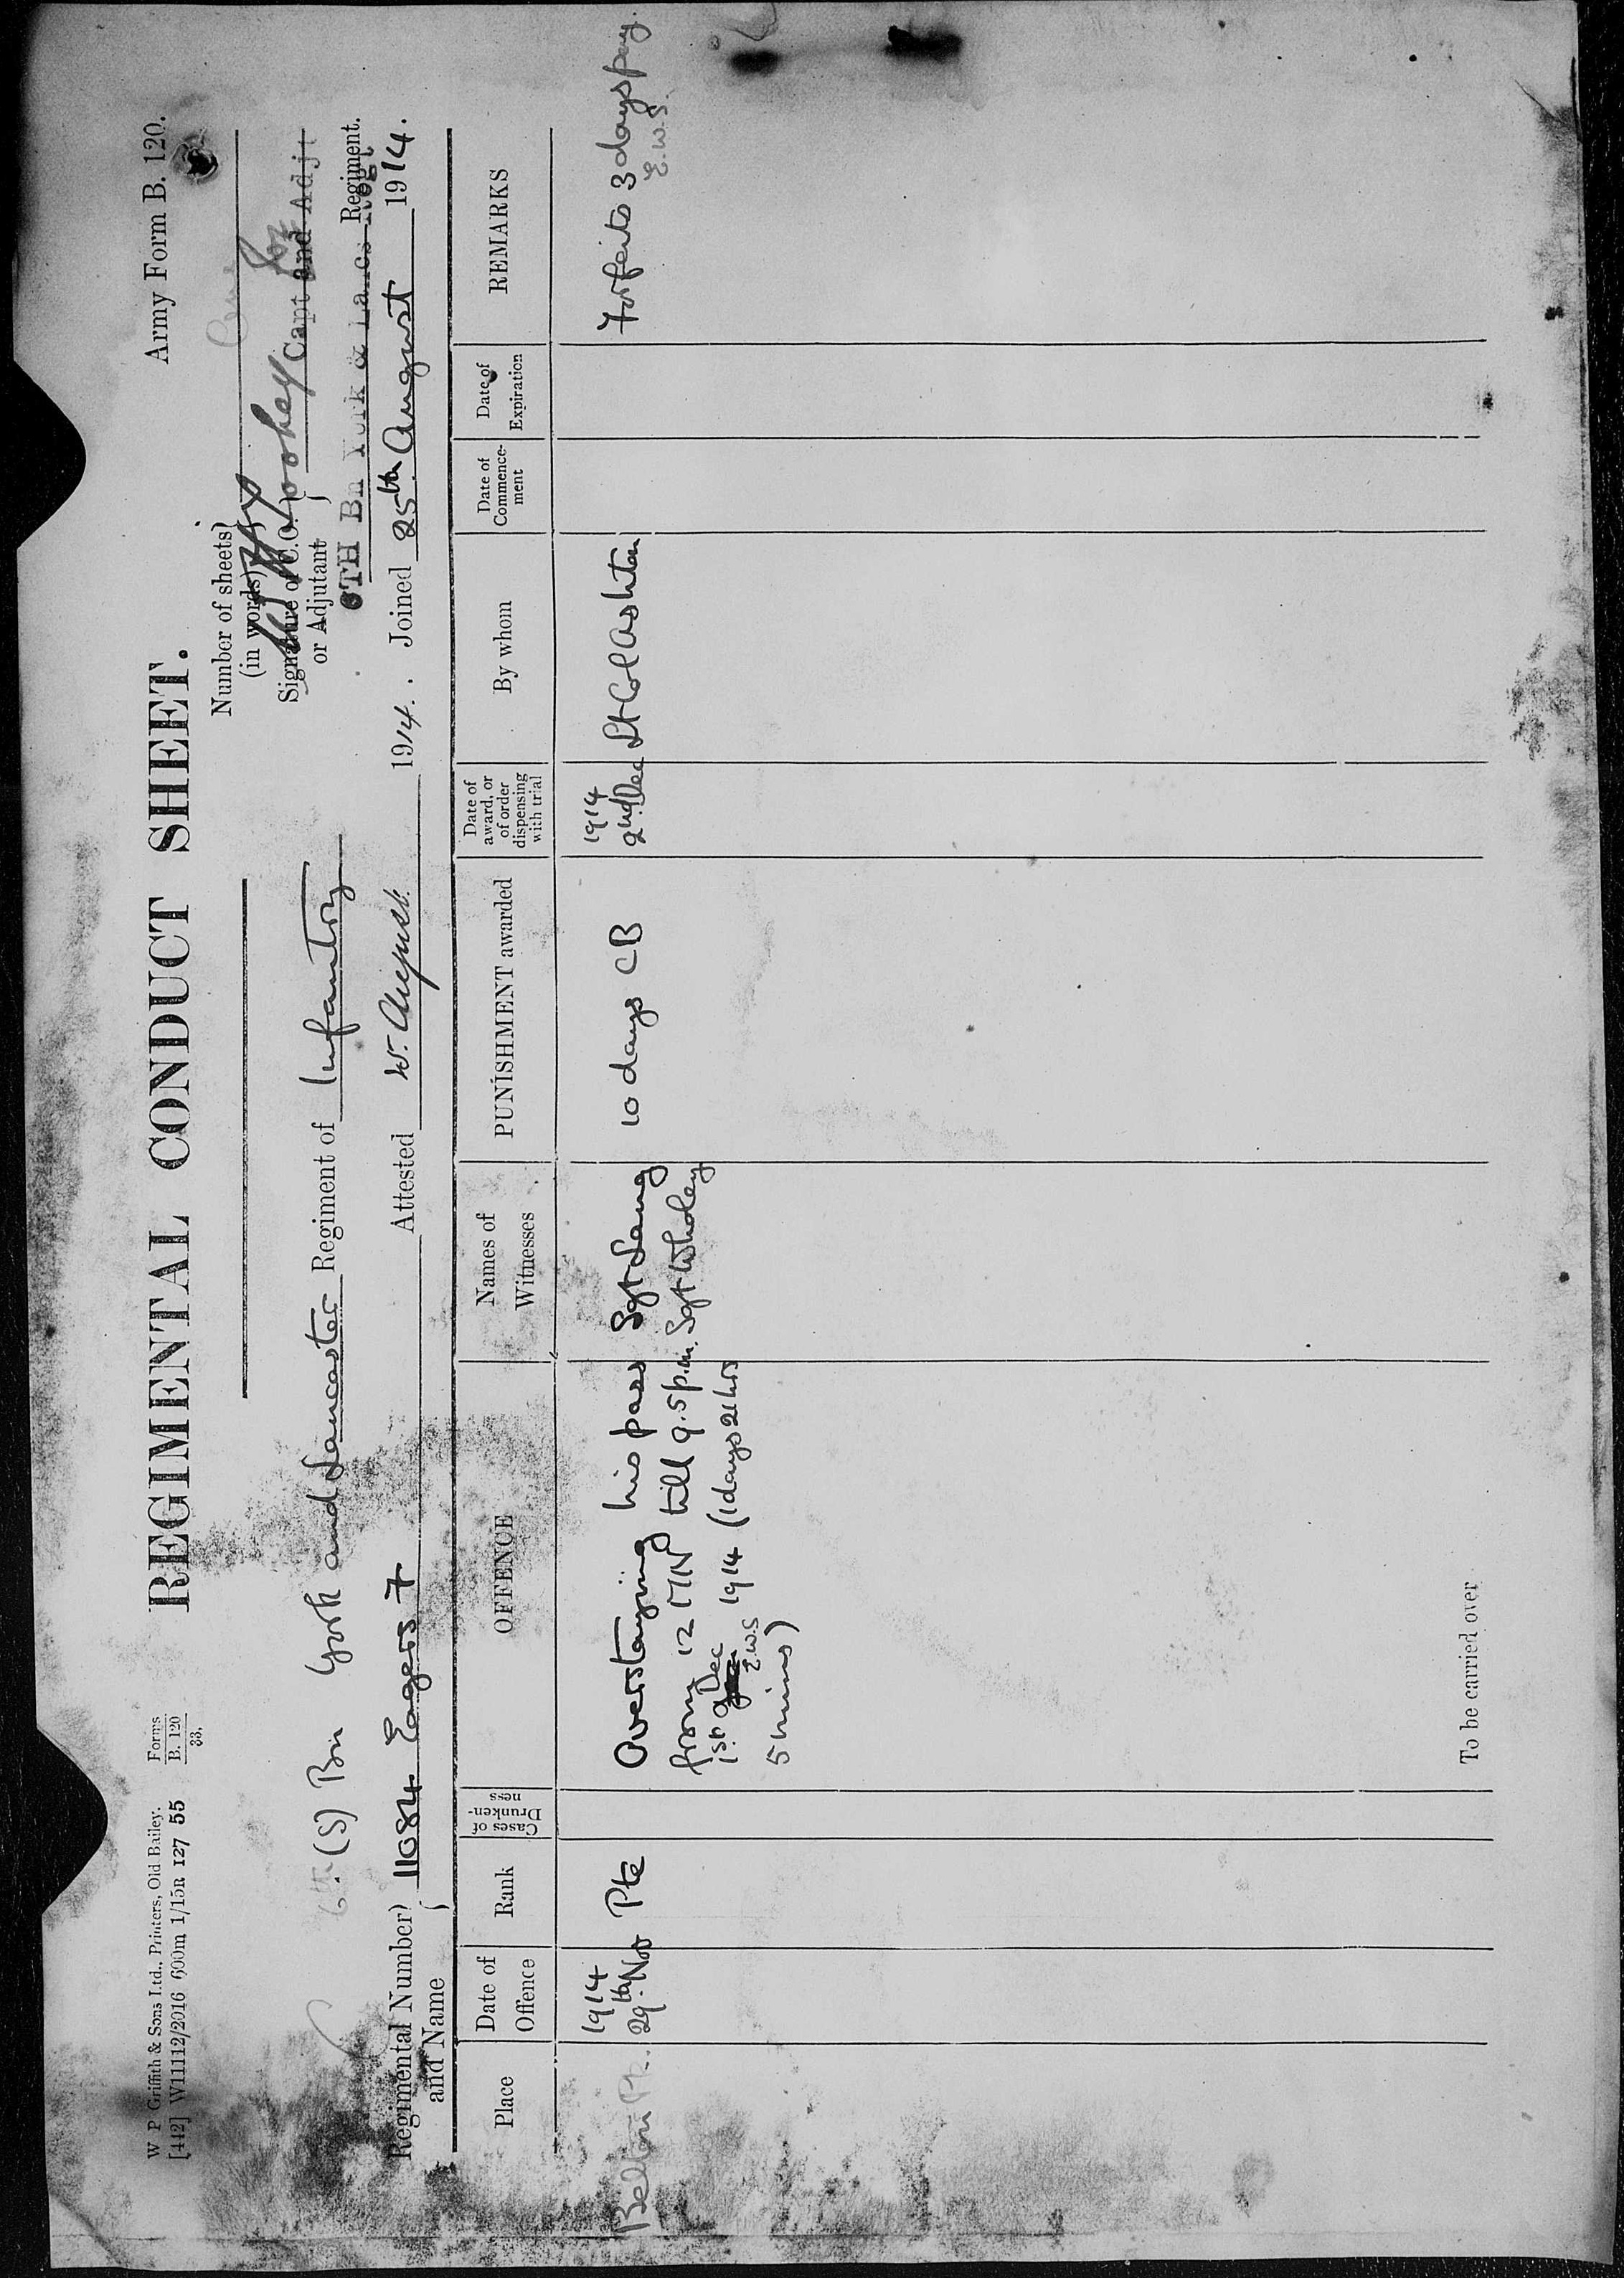 W P Griffith & Sons Ltd., Printers, Old Bailey.
[442] W11112/2016 600m 1/15R 127 55
Forms
B. 120
33.
Army Form B. 120.
REGIMENTAL CONDUCT SHEET.
Number of sheets
(in words)
Signature of C.O.
or Adjutant
Capt and Adjt
6TH Bn York & Lancs Regt
Regiment.
6th (S) Bn York and Lancaster Regiment of Infantry
Regimental Number
and Name
11084 Eagers F Attested 1914. Joined 25th August 1914.
Place
Date of
Offence
Rank
Cases of
Drunken-
ness
OFFENCE
Names of
Witnesses
PUNISHMENT awarded
Date of
award, or
of order
dispensing
with trial
By whom
Date of
Commence-
ment
Date of
Expiration
REMARKS
1914 1914
Belton Pk. 29th Nov Pte Overstaying his pass Sgt Laug 10 days CB 2nd Dec Lt Col Ashton Forfeits 3 days pay.
from 12 MN till 9.5 p.m. Sgt Wholey E.W.S.
1st Dec 1914 (1 days 21 hrs
E.W.S
5 mins)
To be carried over